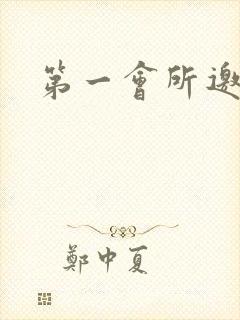 第一會所邀
鄭中夏